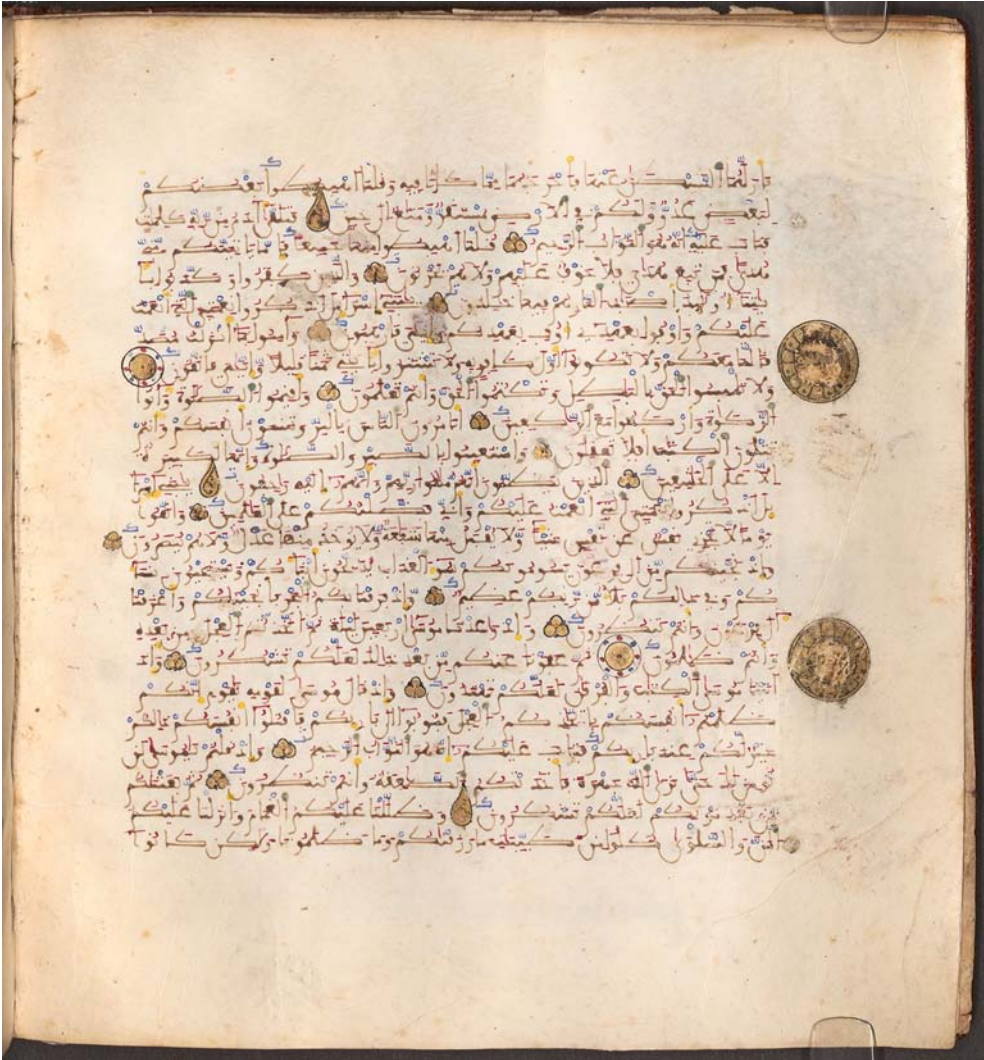 فأزلهما الشيطن عنها فأخرجهما مما كانا فيه وقلنا اهبطوا بعضكم
لبعض عدو ولكم في الارض مستقر ومتاع الى حين فتلقى ادم من ربه كلمت
فتاب عليه انه هو التواب الرحيم قلنا اهبطوا منها جميعا فاما ياتينكم مني
هدى فمن تبع هداي فلا خوف عليهم ولا هم يحزنون والذين كفروا وكذبوا با
يتنا اوليك اصحب النار هم فيها خلدون يبني اسرايل اذكروا نعمتي التي انعمت
عليكم واوفوا بعهدي اوف بعهدكم وايي فارهبون وامنوا بما انزلت مصد
قا لما معكم ولا تكونوا اول كافر به ولا تشتروا بايتي ثمنا قليلا وايي فاتقون
ولا تلبسوا الحق بالبطل وتكتموا الحق وانتم تعلمون واقيموا الصلوة واتوا
الزكوة واركعوا مع الركعين اتامرون الناس بالبر وتنسون انفسكم وانتم
تتلون الكتب افلا تعقلون واستعينوا بالصبر والصلوة وانها لكبيرة
الا على الخشعين الذين يظنون انهم ملقوا ربهم وانهم اليه رجعون يبني اسرا
يل اذكروا نعمتي التي انعمت عليكم واني فضلتكم على العلمين واتقوا
يوما لا تجزي نفس عن نفس شيا ولا يقبل منها شفعة ولا يوخذ منها عدل ولا هم ينصرون
واذ نجينكم من ال فرعون يسومونكم سوء العذاب يذبحون ابناكم ويستحيون نسا
كم وفي ذلكم بلا من ربكم عظيم واذ فرقنا بكم البحر فانجينكم واغرقنا
ال فرعون وانتم تنظرون واذ وعدنا موسى اربعين ليلة ثم اتخذتم العجل من بعده
وانتم ظلمون ثم عفونا عنكم من بعد ذلك لعلكم تشكرون واذ
اتينا موسى الكتب والفرقن لعلكم تهتدون واذ قال موسى لقومه يقوم انكم
ظلمتم انفسكم باتخاذكم العجل فتوبوا الى باريكم فاقتلوا انفسكم ذلكم
خير لكم عند باريكم فتاب عليكم انه هو التواب الرحيم واذ قلتم يموسى لن
نومن لك حتى نرى الله جهرة فاخذتكم الصعقة وانتم تنظرون ثم بعثنكم
من بعد موتكم لعلكم تشكرون وظللنا عليكم الغمام وانزلنا عليكم
المن والسلوى كلوا من طيبت ما رزقنكم وما ظلمونا ولكن كانوا